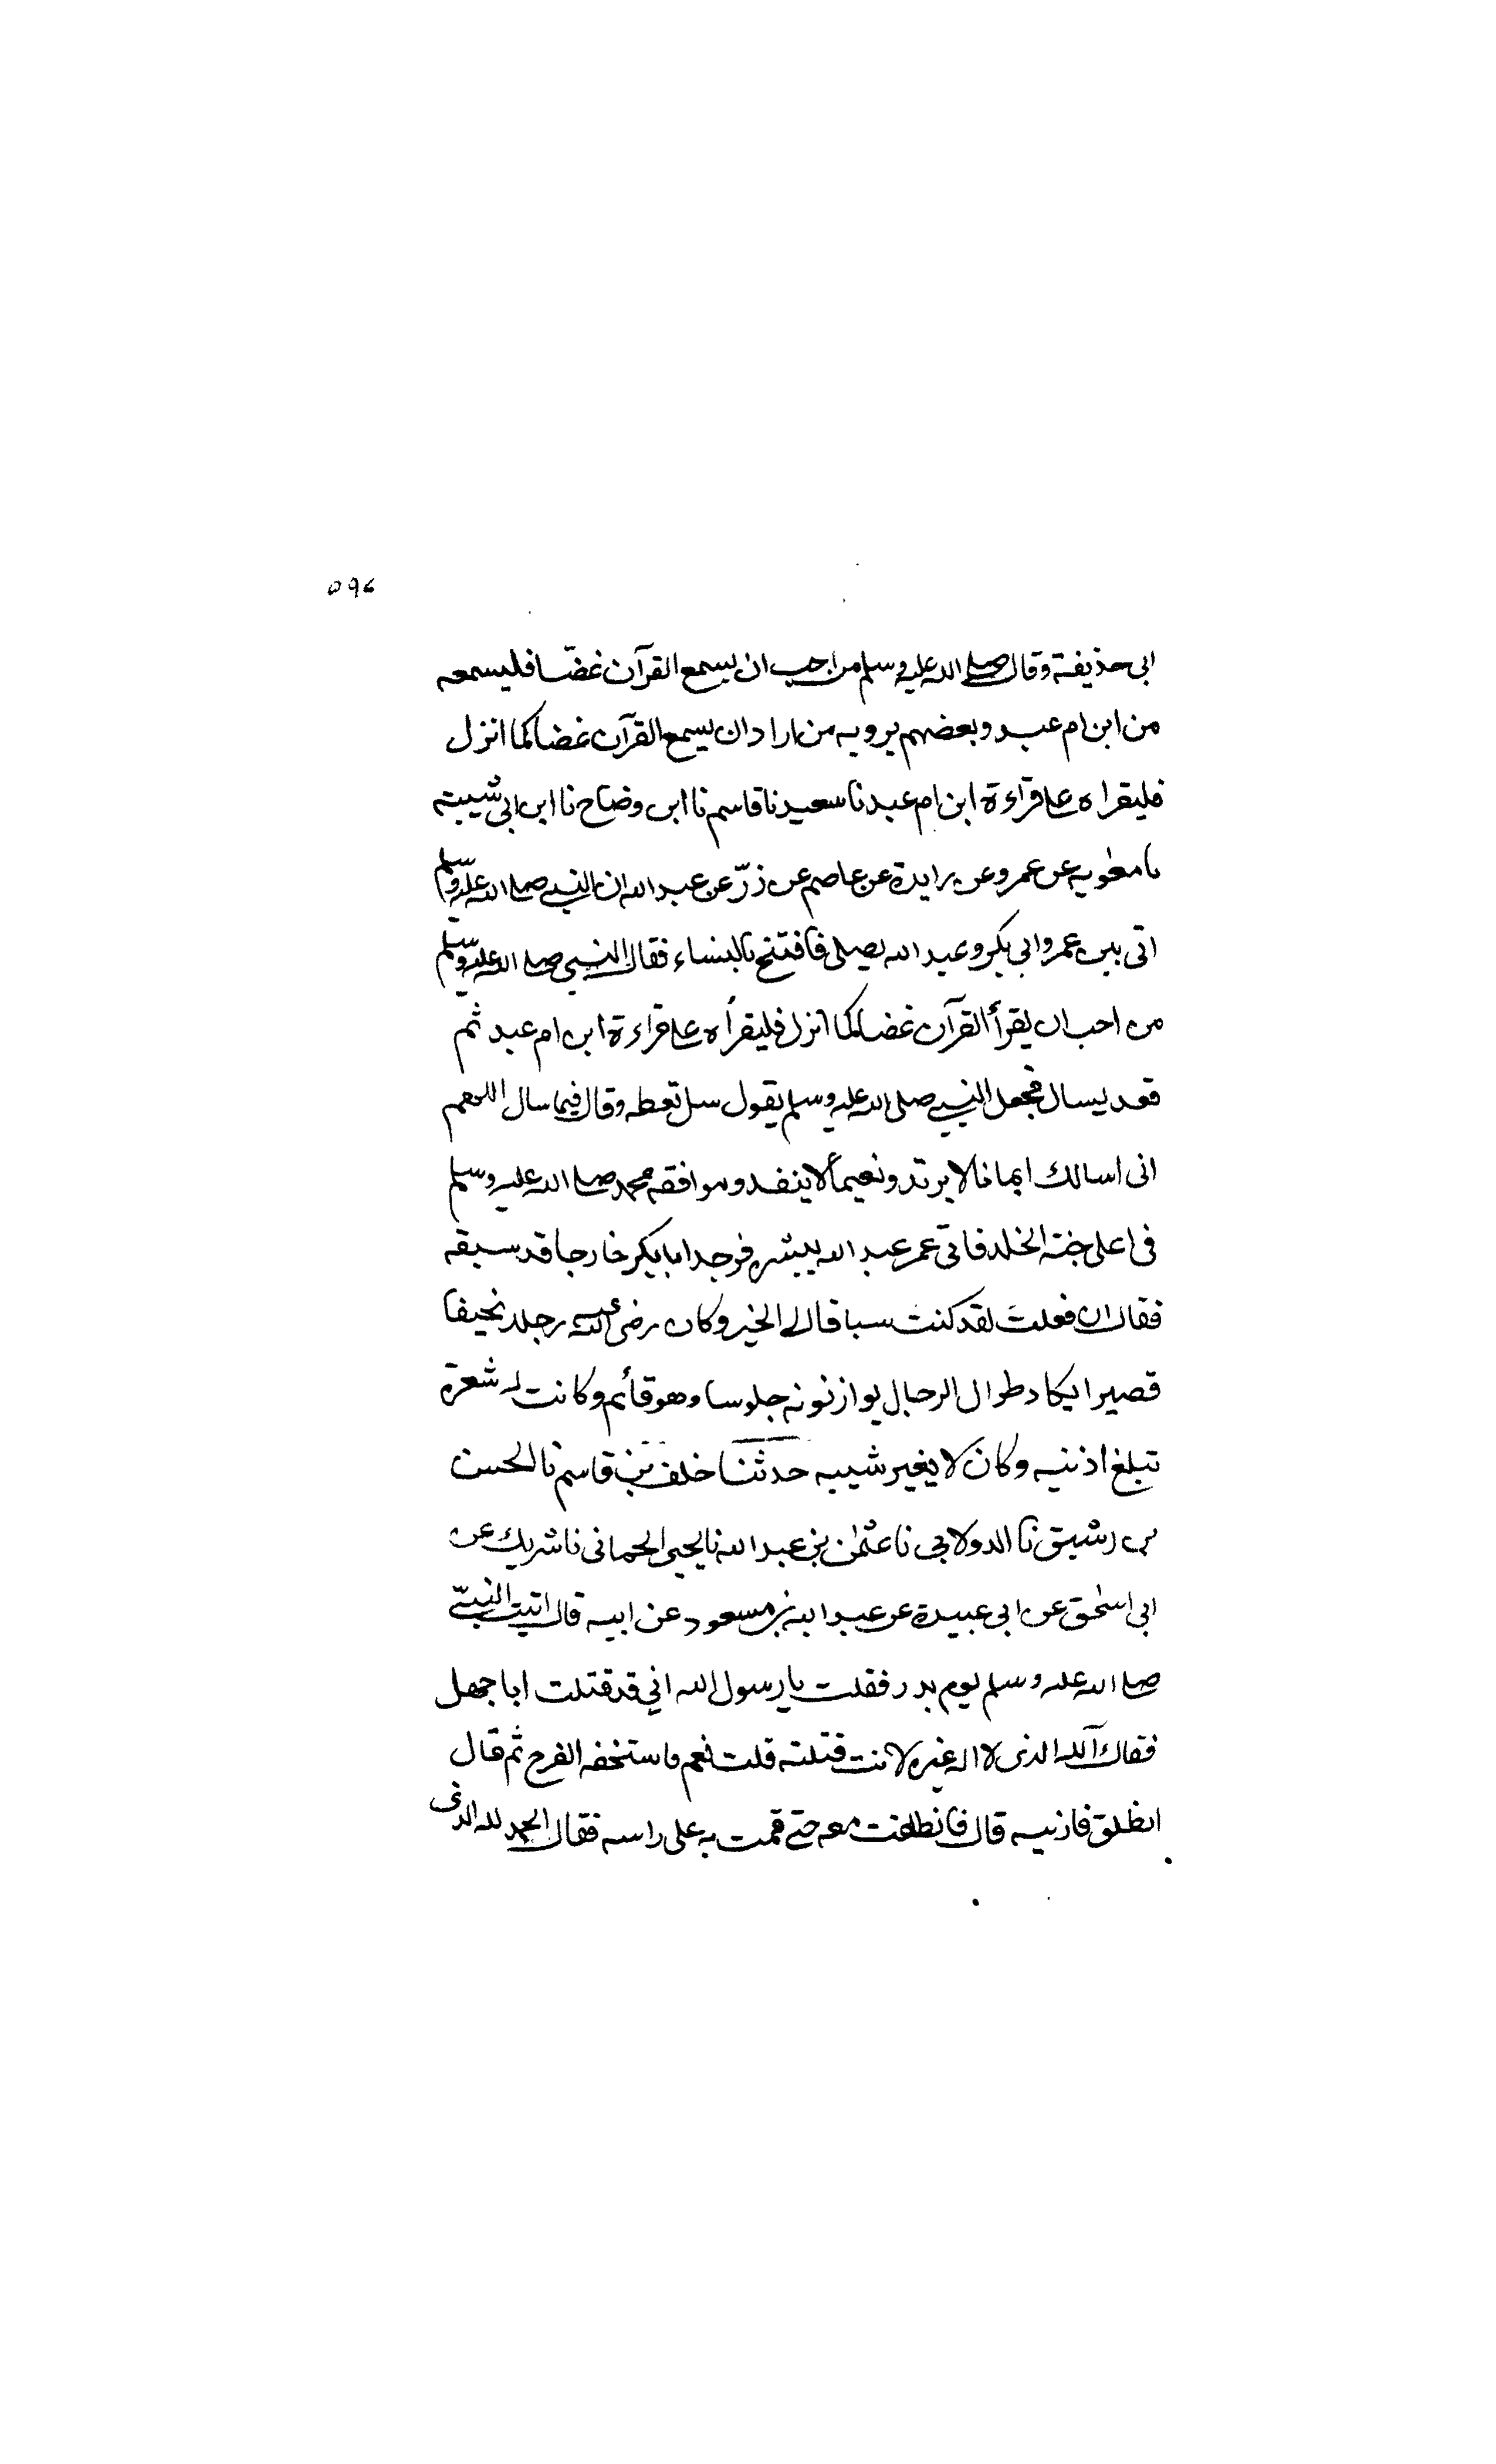 ٥٩٤
ابى حذيفة وقال صلى الله عليه وسلم من احب ان يسمع القرآن غضّا فليسمعه
من ابن ام عبد وبعضهم يرويه من اراد ان يسمع القرآن غضا كما انزل
فليقراه على قراءة ابن ام عبد نا سعيد نا قاسم نا ابن وضاح نا ابن ابى شيبة
نا معٰويه عن عمرو عن زايدة عن عاصم عن زرّ عن عبد الله ان النبى صلى الله عليه وسلم
اتى بين عمر وابى بكر وعبد الله يصلى فافتتح بالنساء فقال النبى صلى الله عليه وسلم
من احب ان يقرأ القرآن غضا كما انزل فليقرأه على قراءة ابن ام عبد ثم
قعد يسال فجعل النبى صلى الله عليه وسلم يقول سل تعطه وقال فيما سال اللهم
انى اسالك ايمانا لا يرتد ونعيمأ لا ينفد ومرافقه محمد صلى الله عليه وسلم
فى اعلى جنة الخلد فاتى عمر عبد الله يبشره فوجد ابا بكر خارجا قد سبقه
فقال ان فعلت لقد كنت سباقا لى الخير وكان رضى الله عنه رجلا نحيفا
قصيرا يكاد طوال الرجال يوازنونه جلوسا وهو قائم وكانت له شعرة
تبلغ اذنيه وكان لا يغير شيبه حدثنا خلف بن قاسم نا الحسن
بن رشيق نا الدولابى نا عثمٰن بن عبد الله نا يحيى الحمانى نا شريك عن
ابى اسٰحق عن ابى عبيدة عن عبد الله بن مسعود عن ابيه قال اتيت النبىّ
صلى الله عليه وسلم يوم بدر فقلت يا رسول الله انى قد قتلت ابا جهل
فقال آلله الذى لا اله غيره لانت قتلته قلت نعم فاستخفه الفرح ثم قال
انطلق فارنيه قال فانطلقت معه حتى قمت به على راسه فقال الحمد لله الذى